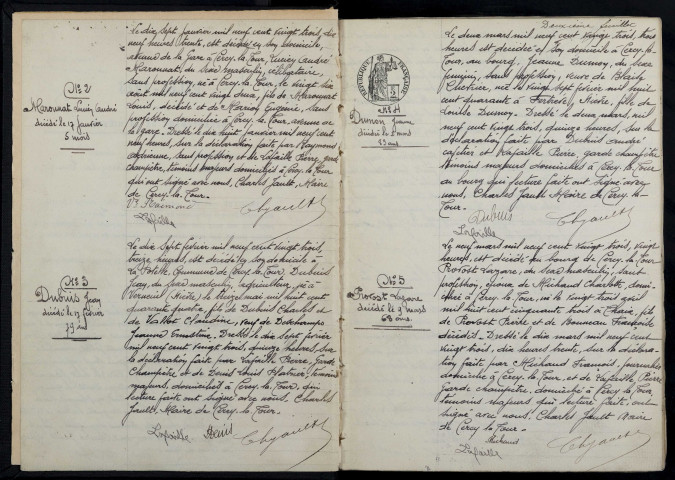 Le dix sept janvier mil neuf cent vingt trois, dix
neuf heures trente, est décédé en son domicile,
avenue de la gare à Cercy la Tour, Lucien André
Marounat, du sexe masculin, célibataire,
sans profession, né à Cercy la Tour, le vingt six
août mil neuf cent vingt deux, fils de Marounat
Louis, décédé et de Marion Eugénie, sans
profession domiciliée à Cercy la Tour, avenue de
la gare. Dressé le dix huit janvier mil neuf cent
neuf heures, sur la déclaration faite par Raymond
Adrienne, sans profession et de Lafaille Pierre, garde
champêtre, témoins majeurs domiciliés à Cercy la Tour
qui ont signé avec nous, Charles Jault, Maire
de Cercy la Tour.
Lafaille
N° 2
Marounat Lucien André
décédé le 17 janvier
5 mois
Le dix sept février mil neuf cent vingt trois,
treize heures, est décédé en son domicile à
Commune de Cercy la Tour, Dubuis
Jean, du sexe masculin, agriculteur, né à
Verneuil, Nièvre, le treize mai mil huit cent
quarante quatre, fils de Dubuis Charles et
de Vallet Claudine, veuf de Deschamps
Jeanne Ernestine. Dressé le dix sept février
mil neuf cent vingt trois, quinze heures sur
la déclaration faite par Lafaille Pierre, Garde
Champêtre et de Denis Louis
majeurs, domiciliés à Cercy la Tour, qui
lecture faite ont signé avec nous. Charles
Jault, Maire de Cercy la Tour.
Lafaille Denis
N° 3
Dubuis Jean
décédé le 17 février
79 ans
Deuxième feuillet
Le deux mars mil neuf cent vingt trois, trois
heures est décédée en son domicile à Cercy la
Tour, au bourg, Jeanne Dumon, du sexe
féminin, sans profession, veuve de Blaise
née le vingt sept février mil huit
cent quarante à Nièvre, fille de
Louise Dumon. Dressé le deux mars, mil
neuf cent vingt trois, quinze heures, sur la
déclaration faite par Dubuis André
et Lafaille Pierre, garde champêtre
témoins majeurs domiciliés à Cercy la Tour
au bourg qui lecture faite ont signé avec
nous, Charles Jault Maire de Cercy la
Tour.
Dubuis
Lafaille
RÉPUBLIQUE FRANÇAISE
N° 4
Dumon Jeanne
décédée le 2 mars
83 ans
Le neuf mars mil neuf cent vingt trois, vingt
heures, est décédé au bourg de Cercy la Tour,
Provost Lazare, du sexe masculin, sans
profession, époux de Michaud Charlotte, domi-
cilié à Cercy la Tour, né le vingt trois avril
mil huit cent cinquante trois à fils
de Provost Pierre et de Bonneau Françoise
décédés. Dressé le dix mars mil neuf cent
vingt trois, dix heures trente, sur la déclara-
tion faite par Michaud François, journalier
domicilié à Cercy la Tour, et de Lafaille Pierre
garde champêtre, domicilié à Cercy la Tour,
témoins majeurs qui lecture faite, ont
signé avec nous. Charles Jault Maire
de Cercy la Tour.
Michaud
Lafaille
N° 5
Provost Lazare
décédé le 9 mars
69 ans.